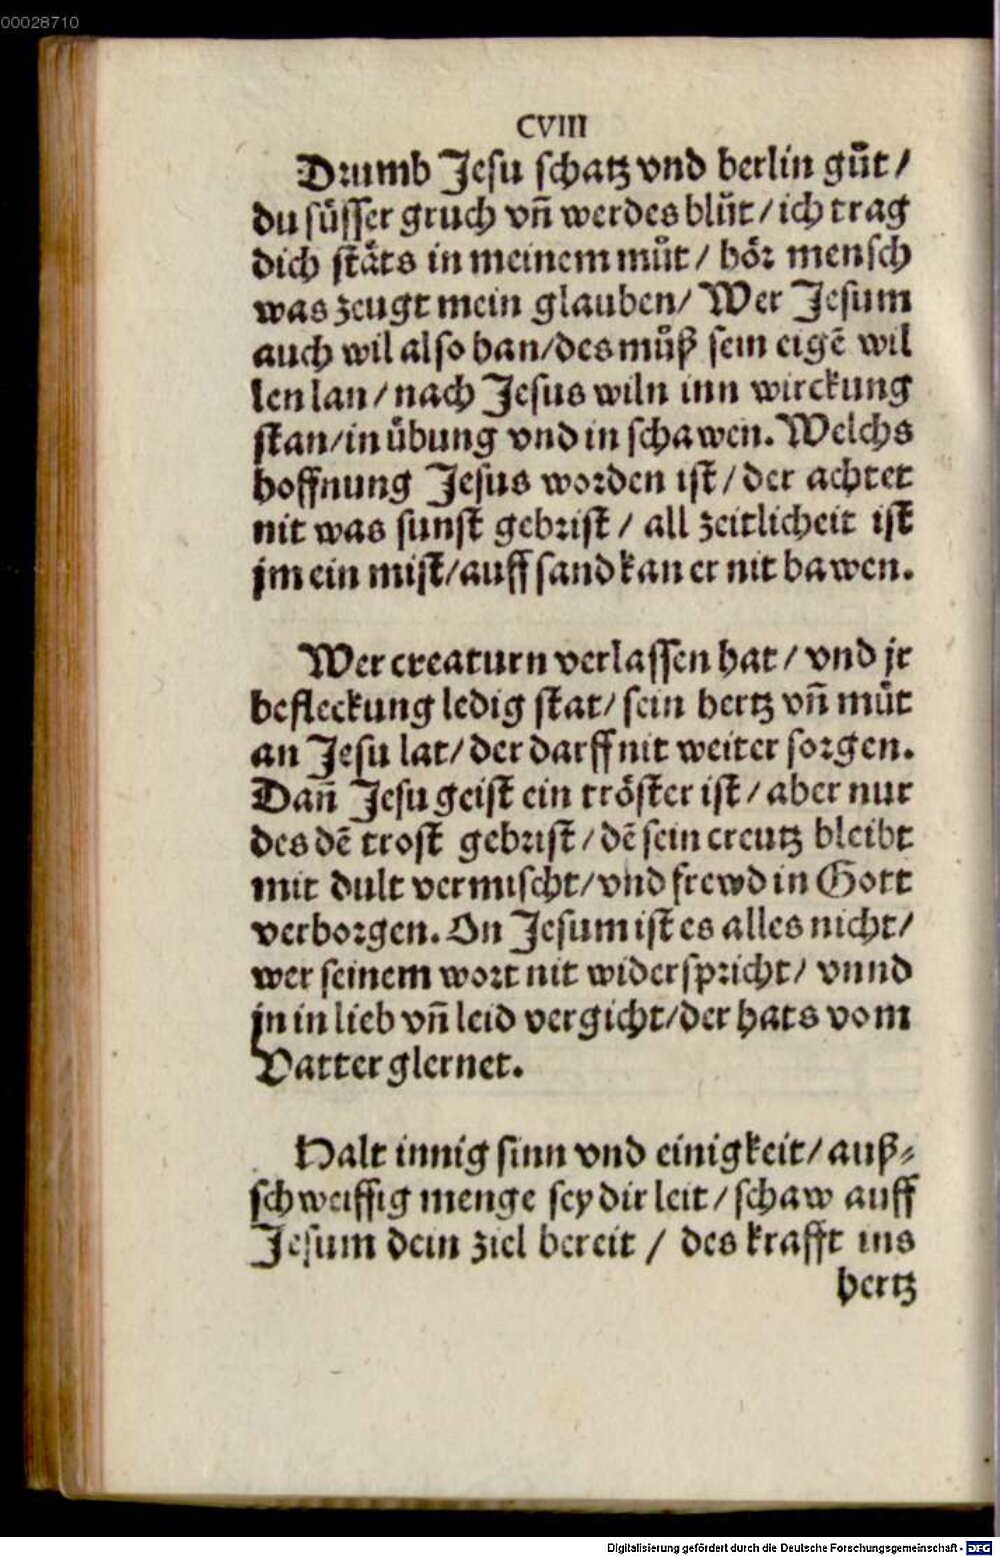 00028710
CVIII
Drumb Jesu schatz vnd berlin gůt /
du süsser gruch vñ werdes blůt / ich trag
dich stäts in meinem můt / hör mensch
was zeugt mein glauben / Wer Jesum
auch wil also han / des můß sein eigẽ wil
len lan / nach Jesus wiln inn wirckung
stan / in übung vnd in schawen. Welchs
hoffnung Jesus worden ist / der achtet
nit was sunst gebrist / all zeitlicheit ist
jm ein mist / auff sand kan er nit bawen.
Wer creaturn verlassen hat / vnd jr
befleckung ledig stat / sein hertz vñ můt
an Jesu lat / der darff nit weiter sorgen.
Dañ Jesu geist ein tröster ist / aber nur
des dẽ trost gebrist / dẽ sein creutz bleibt
mit dult vermischt / vnd frewd in Gott
verborgen. On Jesum ist es alles nicht /
wer seinem wort nit widerspricht / vnnd
jn in lieb vñ leid vergicht / der hats vom
Vatter glernet.
Halt innig sinn vnd einigkeit / auß⸗
schweiffig menge sey dir leit / schaw auff
Jesum dein ziel bereit / des krafft ins
hertz
Digitalisierung gefördert durch die Deutsche Forschungsgemeinschaft - DFG